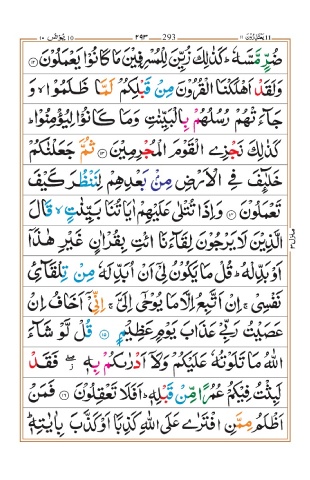 يونس ١٠ ٢٩٣ 293 يعتذرون ١١
ضُرٍّ مَّسَّهٗ ؕ كَذٰلِكَ زُيِّنَ لِلْمُسْرِفِيْنَ مَا كَانُوْا يَعْمَلُوْنَ ﴿۱۲﴾
وَلَقَدْ اَهْلَكْنَا الْقُرُوْنَ مِنْ قَبْلِكُمْ لَمَّا ظَلَمُوْا ۙ وَ
جَآءَتْهُمْ رُسُلُهُمْ بِالْبَيِّنٰتِ وَمَا كَانُوْا لِيُؤْمِنُوْا ؕ
كَذٰلِكَ نَجْزِي الْقَوْمَ الْمُجْرِمِيْنَ ﴿۱۳﴾ ثُمَّ جَعَلْنٰكُمْ
خَلٰٓئِفَ فِي الْاَرْضِ مِنْۢ بَعْدِهِمْ لِنَنْظُرَ كَيْفَ
تَعْمَلُوْنَ ﴿۱۴﴾ وَاِذَا تُتْلٰى عَلَيْهِمْ اٰيَاتُنَا بَيِّنٰتٍ ۙ قَالَ
الَّذِيْنَ لَا يَرْجُوْنَ لِقَآءَنَا ائْتِ بِقُرْاٰنٍ غَيْرِ هٰذَآ
اَوْ بَدِّلْهُ ؕ قُلْ مَا يَكُوْنُ لِيْٓ اَنْ اُبَدِّلَهٗ مِنْ تِلْقَآئِ
نَفْسِيْ ۚ اِنْ اَتَّبِعُ اِلَّا مَا يُوْحٰٓى اِلَيَّ ۚ اِنِّيْٓ اَخَافُ اِنْ
عَصَيْتُ رَبِّيْ عَذَابَ يَوْمٍ عَظِيْمٍ ﴿۱۵﴾ قُلْ لَّوْ شَآءَ
اللّٰهُ مَا تَلَوْتُهٗ عَلَيْكُمْ وَلَآ اَدْرٰىكُمْ بِهٖ ۖ ز فَقَدْ
لَبِثْتُ فِيْكُمْ عُمُرًا مِّنْ قَبْلِهٖ ؕ اَفَلَا تَعْقِلُوْنَ ﴿۱۶﴾ فَمَنْ
اَظْلَمُ مِمَّنِ افْتَرٰى عَلَى اللّٰهِ كَذِبًا اَوْ كَذَّبَ بِاٰيٰتِهٖ ؕ
منزل ٣